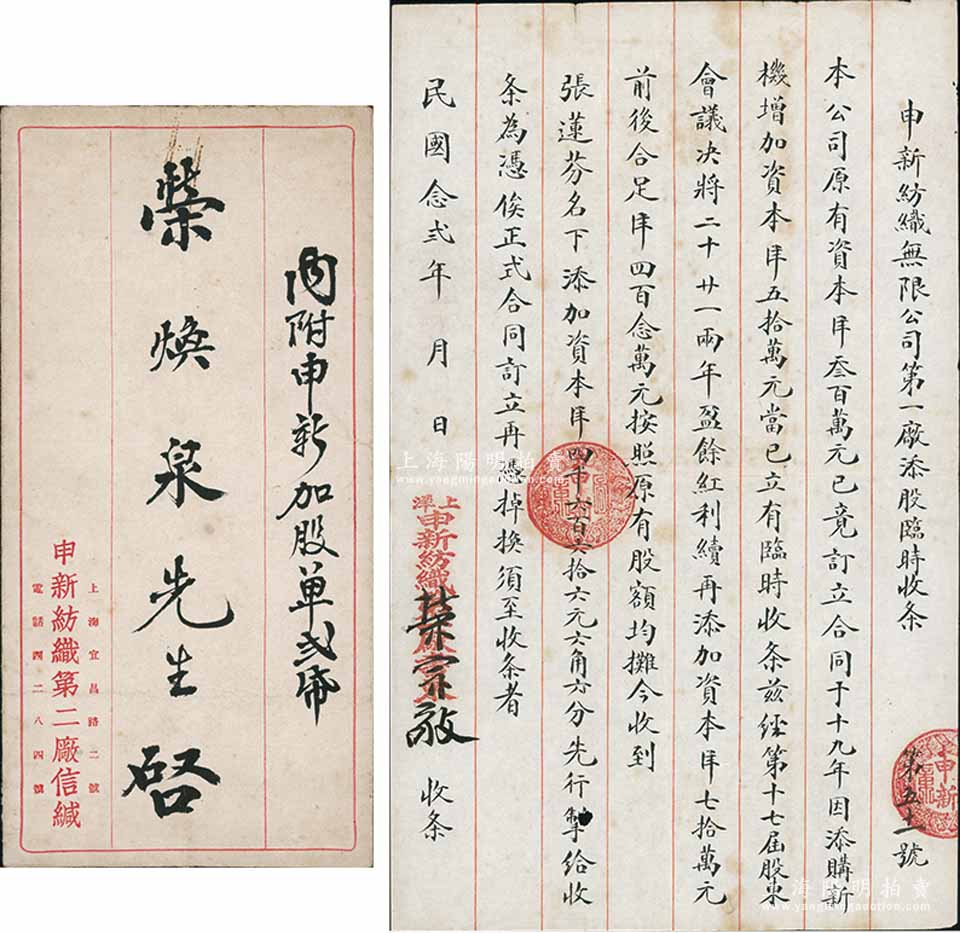 內附申新加股單弍帋
榮煥泉先生 啓
上海宜昌路二號
申新紡織第二廠信緘
電話四二八四號
申新紡織無限公司第一廠添股臨時收条
第五十一號
本公司原有資本洋叁百萬元已竟訂立合同于十九年因添購新
機增加資本洋五拾萬元當已立有臨時收条茲經第十七屆股東
會議决將二十廿一兩年盈餘紅利續再添加資本洋七拾萬元
前後合足洋四百念萬元按照原有股額均攤今收到
張蓮芬名下添加資本洋四千六百六拾六元六角六分先行掣給收
条為憑俟正式合同訂立再憑掉換須至收条者
民國念弍年 月 日
上洋
申新紡織
榮宗敬 收条
申新
上海陽明拍賣
www.yangmingauction.com
上海陽明拍賣
www.yangmingauction.com